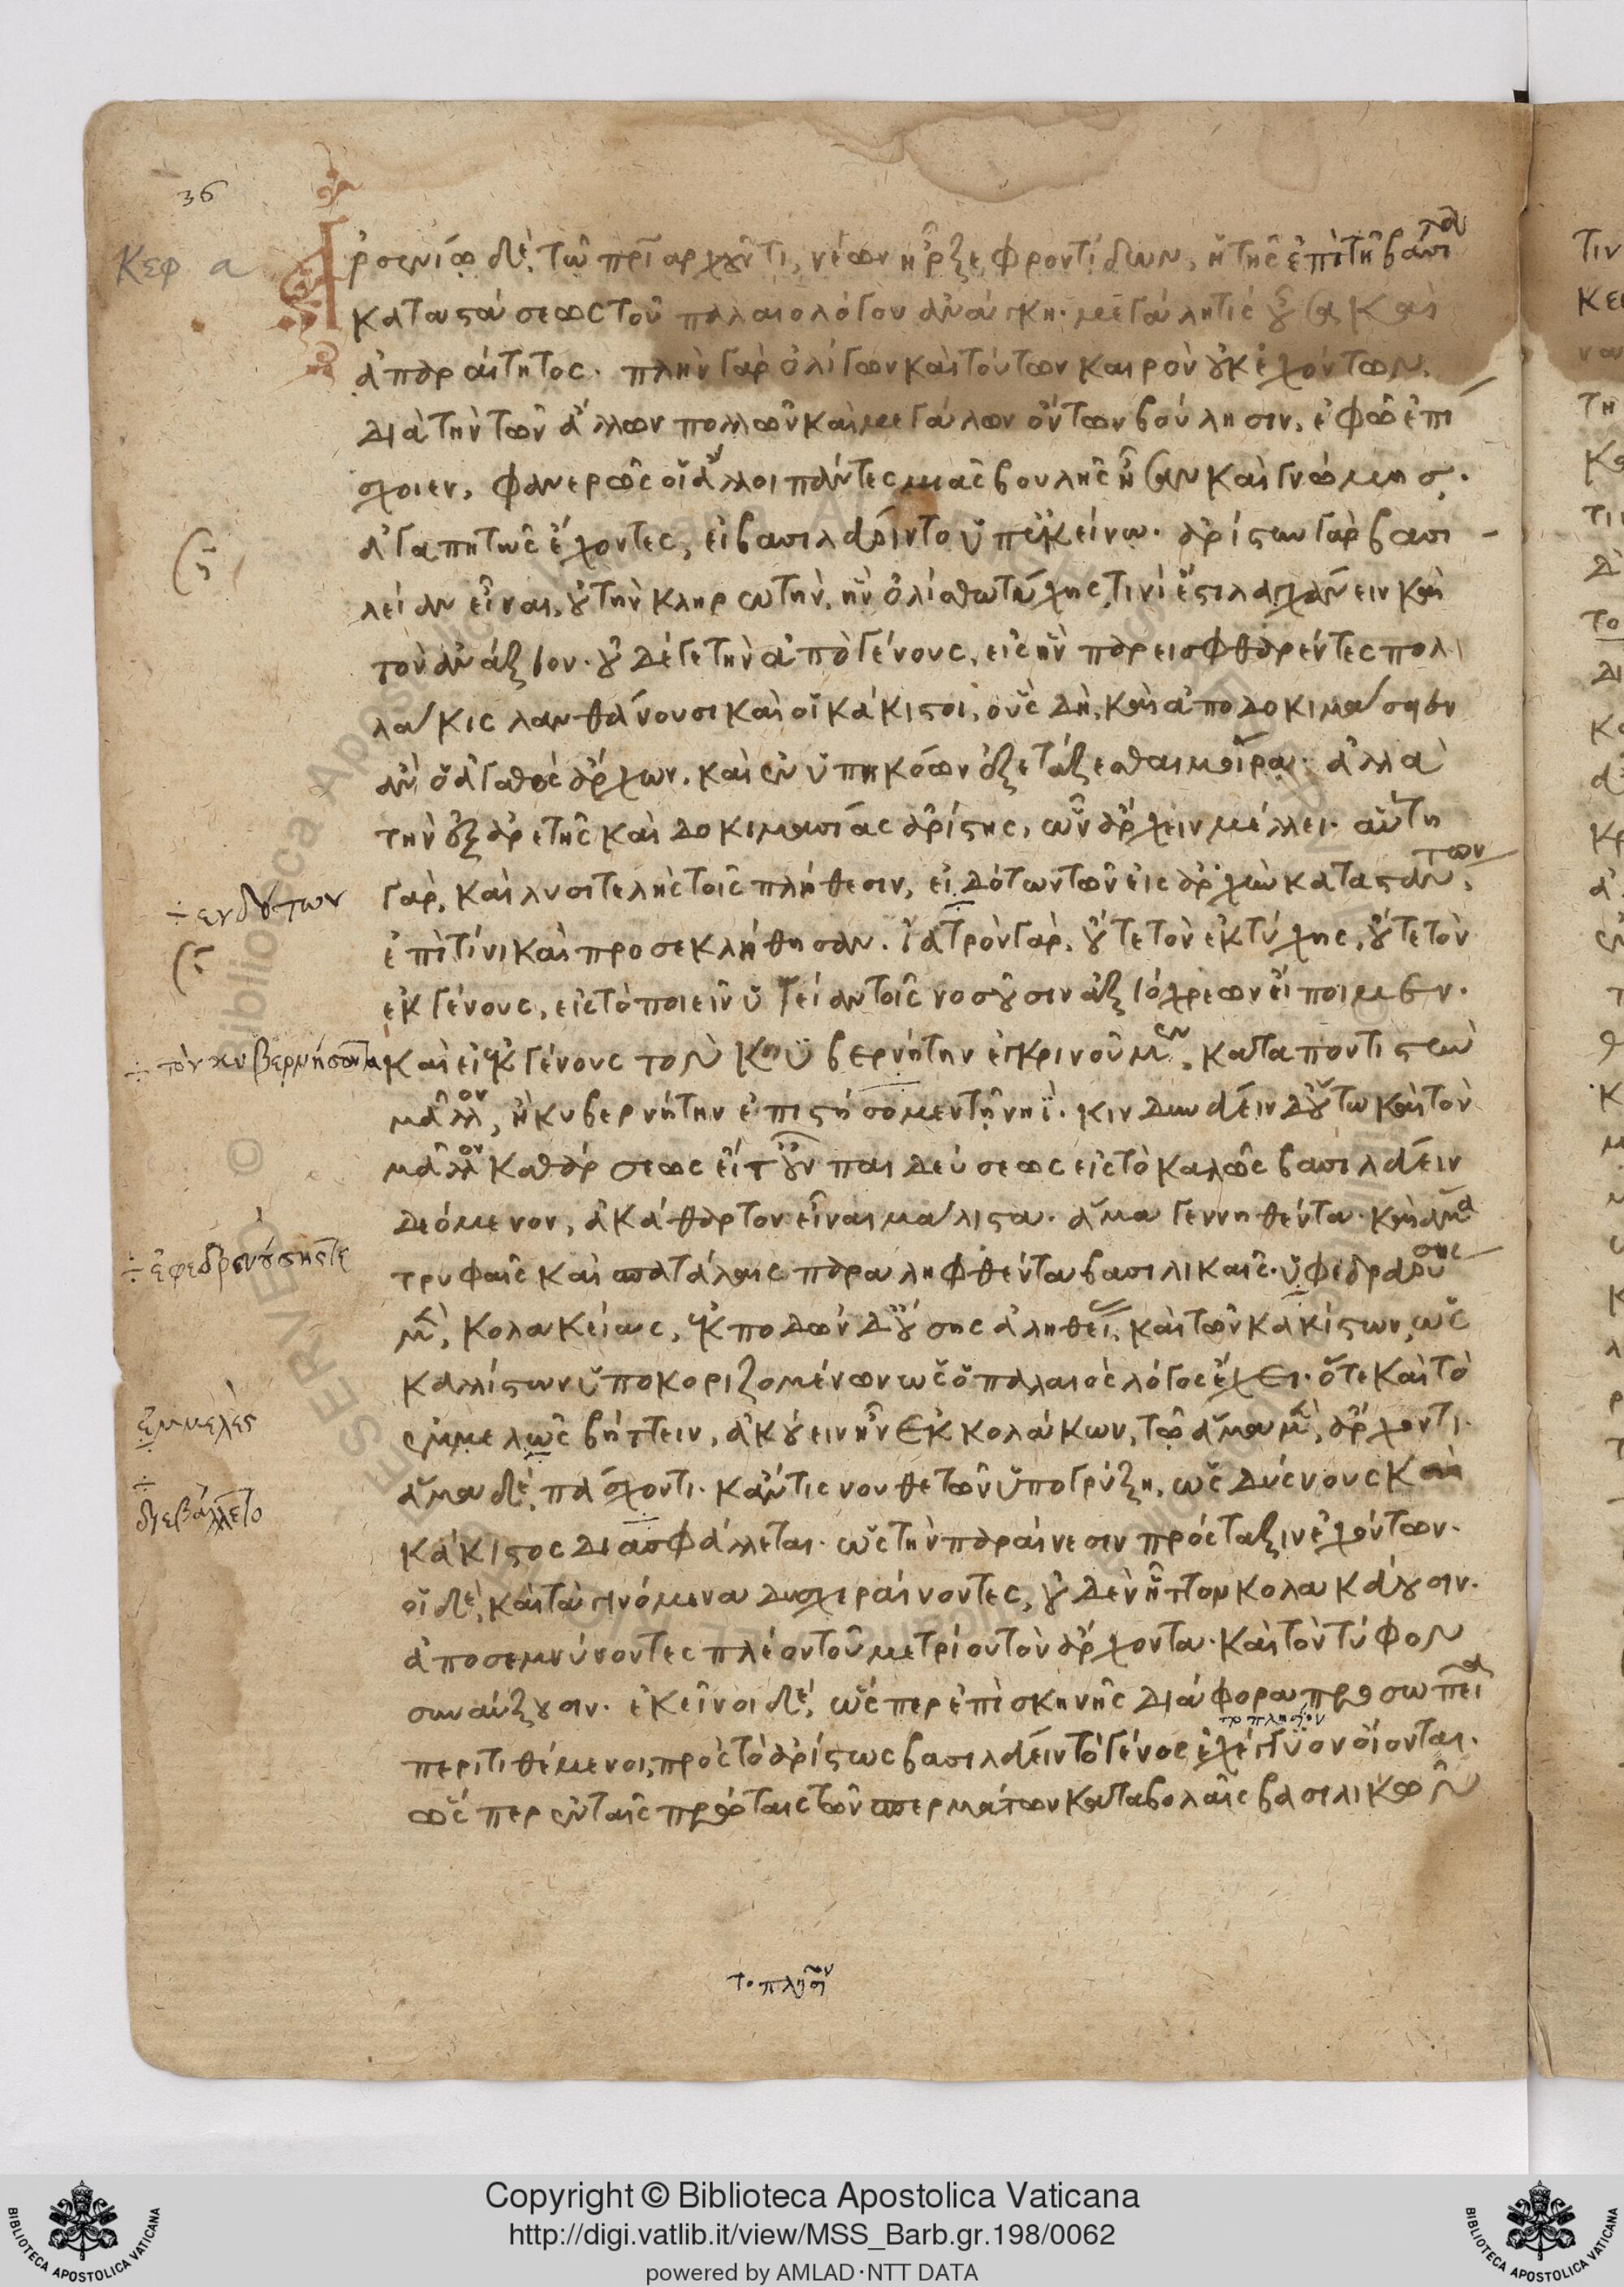 36
Κεφ α
Ἀρσενίῳ δὲ τῶ πρϊαρχοῦντι, νέων ἦρξε φροντίδων, ἡ τῆς ἐπὶ τῆ βασι τοῦ
καταστάσεως τοῦ παλαιολόγου ἀνάγκη. μεγάλη τίς οὖσα καὶ
ἀπαραίτητος. πλὴν γὰρ ὀλίγων καὶ τούτων καιρὸν οὐκ ἐχόντων,
διὰ τὴν τῶν ἄλλων πολλῶν καὶ μεγάλων ὄντων βούλησιν, ἐφῶ ἐπι
σχοιεν, φανερῶς οἱ ἄλλοι πάντες μιᾶς βουλῆς ἦσαν καὶ γνώμης.
ἀγαπητῶς ἔχοντες, εἰ βασιλεύοιντο ὑπ' ἐκείνω. ἀρίστην γὰρ βασι
λείαν εἶναι, οὐ τὴν κληρωτὴν, ἣν ὀλίσθω τύχης τινὶ ἔστι λαγχάνειν καὶ
τὸν ἀνάξιον. οὐδέ γε τὴν ἀπὸ γένους, εἰς ἣν παρεισφθαρέντες πολ
λάκις λανθάνουσι καὶ οἱ κάκιστοι, οὓς δὴ, καὶ ἀποδοκιμάσαιεν
ἂν ὁ ἀγαθὸς ἄρχων. καὶ ἐν ὑπηκόων ἐξετάζεσθαι μοίρα. ἀλλὰ
τὴν ἐξ ἀρετῆς καὶ δοκιμασίας ἀρίστης, ὧν ἄρχειν μέλλει. αὕτη
γὰρ, καὶ λυσιτελὴς τοῖς πλήθεσιν, εἰδότων τῶν εἰς ἀρχὴν καταστάντων,
÷ ενδόντων
ἐπὶ τίνι καὶ προσεκλήθησαν. ἰατρὸν γὰρ, οὔτε τὸν ἐκ τύχης, οὔτε τὸν
ἐκ γένους, εἰς τὸ ποιεῖν ὑγείαν τοῖς νοσοῦσιν ἀξιόχρεων εἴποιμεν.
÷ τὸν κυβερνήσοντα
καὶ εἰ ἐκ γένους τὸν κυβερνήτην ἐγκρινοῦμεν, καταποντιστὴν
μᾶλλον, ἢ κυβερνήτην ἐπιστήσομεν τῆ νηΐ. κινδυνεύειν δ' οὕτω καὶ τὸν
μᾶλλον καθάρσεως εἴτουν παιδεύσεως εἰς τὸ καλῶς βασιλεύειν
δεόμενον, ἀκάθαρτον εἶναι μάλιστα. ἅμα γεννηθέντα. καὶ ἅμα
÷ ἐφεδρευούσης τε
τρυφαῖς καὶ σπατάλαις παραληφθέντα βασιλικαῖς. ὑφεδρευούσης
μὲν, κολακείας, ἐκποδὼν δ' οὔσης ἀληθεί, καὶ τῶν κακίστων, ὡς
καλλίστων ὑποκοριζομένων ὡς ὁ παλαιὸς λόγος ἔχει. ὅτε καὶ τὸ
ἐμμελὲς
ἐμμελῶς βήττειν, ἀκούειν ἦν ἐκ κολάκων, τῶ ἅμα μὲν, ἄρχοντι.
÷
διεβάλλετο
ἅμα δὲ, πάσχοντι. κἄν τις νουθετῶν ὑπογρύξη, ὡς δύσνους καὶ
κάκιστος διασφάλλεται. ὡς τὴν παραίνεσιν πρόσταξιν ἐχόντων.
οἱ δὲ, καὶ τὰ γινόμενα δυσχεραίνοντες, οὐδὲν ἧττον κολακεύουσιν.
ἀποσεμνύνοντες πλέον τοῦ μετρίου τὸν ἄρχοντα. καὶ τὸν τύφον
συναύξουσιν. ἐκεῖνοι δὲ, ὥσπερ ἐπὶ σκηνῆς διάφορα προσωπεῖα
το πλησίον
περιτιθέμενοι, πρὸς τὸ ἀρίστως βασιλεύειν τὸ γένος ἐχέγγυον οἴονται.
ὥσπερ ἐν ταῖς πρώταις τῶν σπερμάτων καταβολαῖς βασιλικῶν
το πλησίον
Copyright © Biblioteca Apostolica Vaticana
http://digi.vatlib.it/view/MSS_Barb.gr.198/0062
powered by AMLAD·NTT DATA
BIBLIOTECA APOSTOLICA VATICANA
BIBLIOTECA APOSTOLICA VATICANA